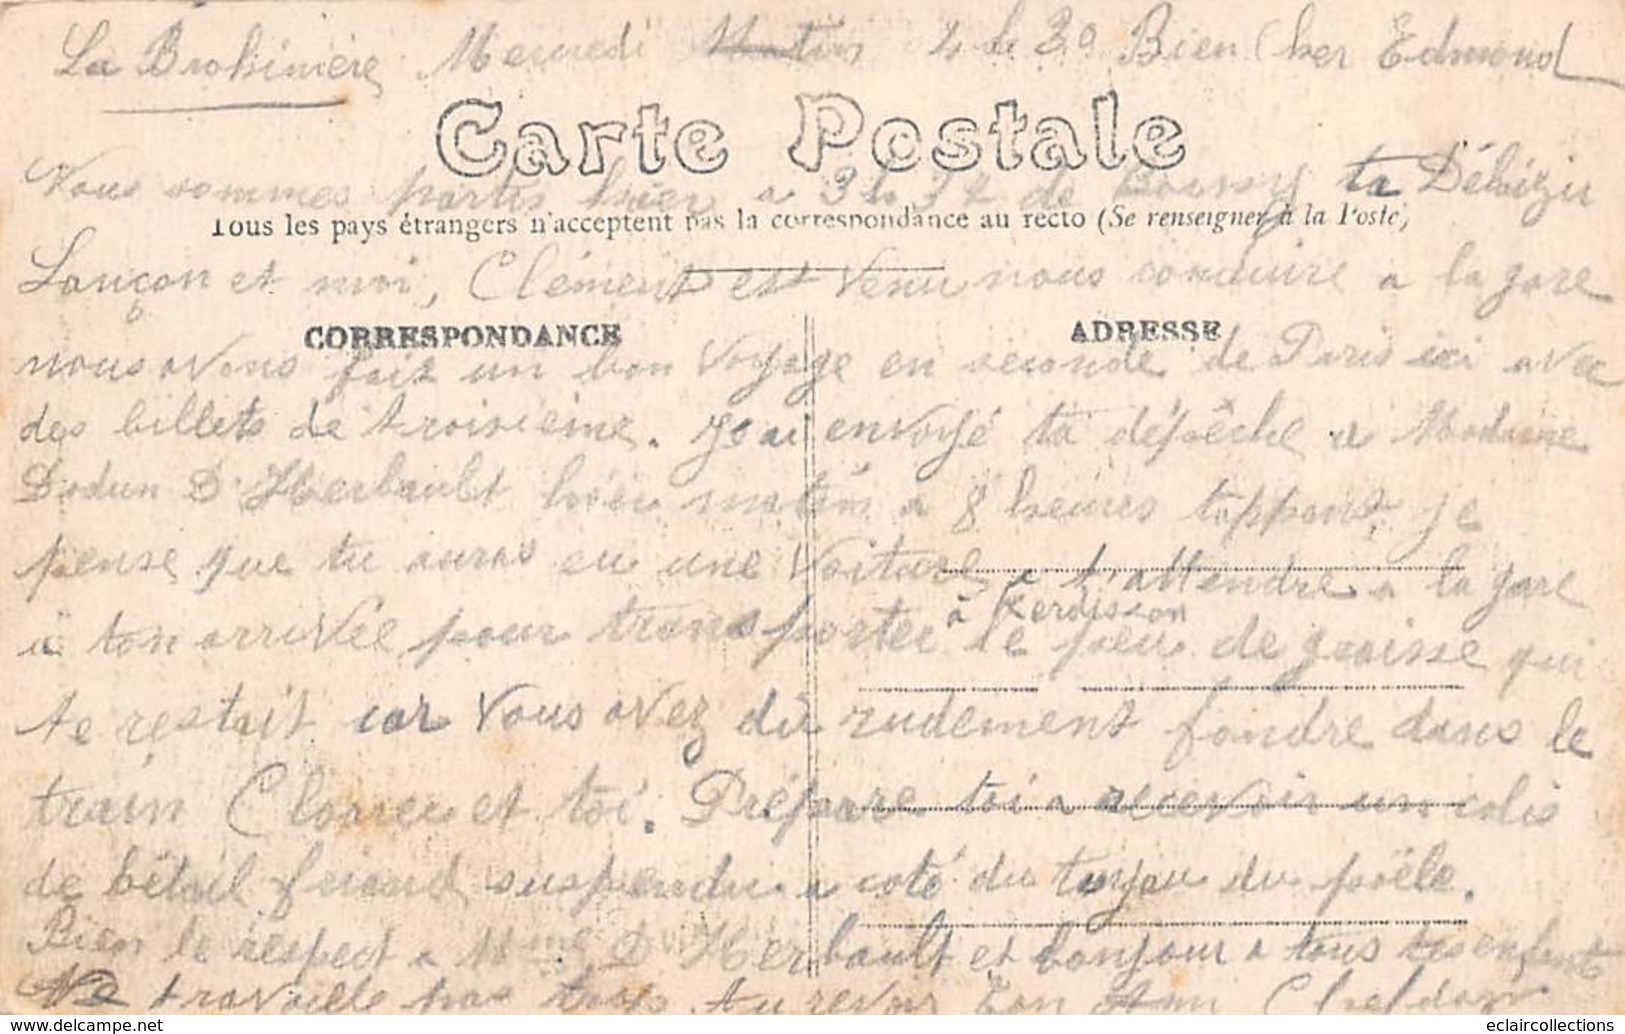 La Brohinière Mercredi Matin 4 h 30 Bien Cher Edmond
Carte Postale
Nous sommes partis hier a 3 h 32 de ta Délaizir
Tous les pays étrangers n'acceptent pas la correspondance au recto (Se renseigner à la Poste)
Lançon et moi, Clément est venu nous conduire a la gare
CORRESPONDANCE ADRESSE
nous avons fait un bon voyage en seconde de Paris ici avec
des billets de troisième. J'ai envoyé ta dépêche a Madame
Dodun D'Herbault hier matin a 8 heures tappant, je
pense que tu auras eu une voiture a t'attendre a la gare
à Kerdisson
a ton arrivée pour transporter le peu de graisse qui
te restait car vous avez dû rudement fondre dans le
train et toi. Prépare toi a recevoir un colis
de bétail friand suspendu a coté du tuyau du poële.
Bien le respect a Mme D'Herbault et bonjour a tous tes enfants
Ne travaille pas trop. Au revoir Ton Ami
eclaircollections